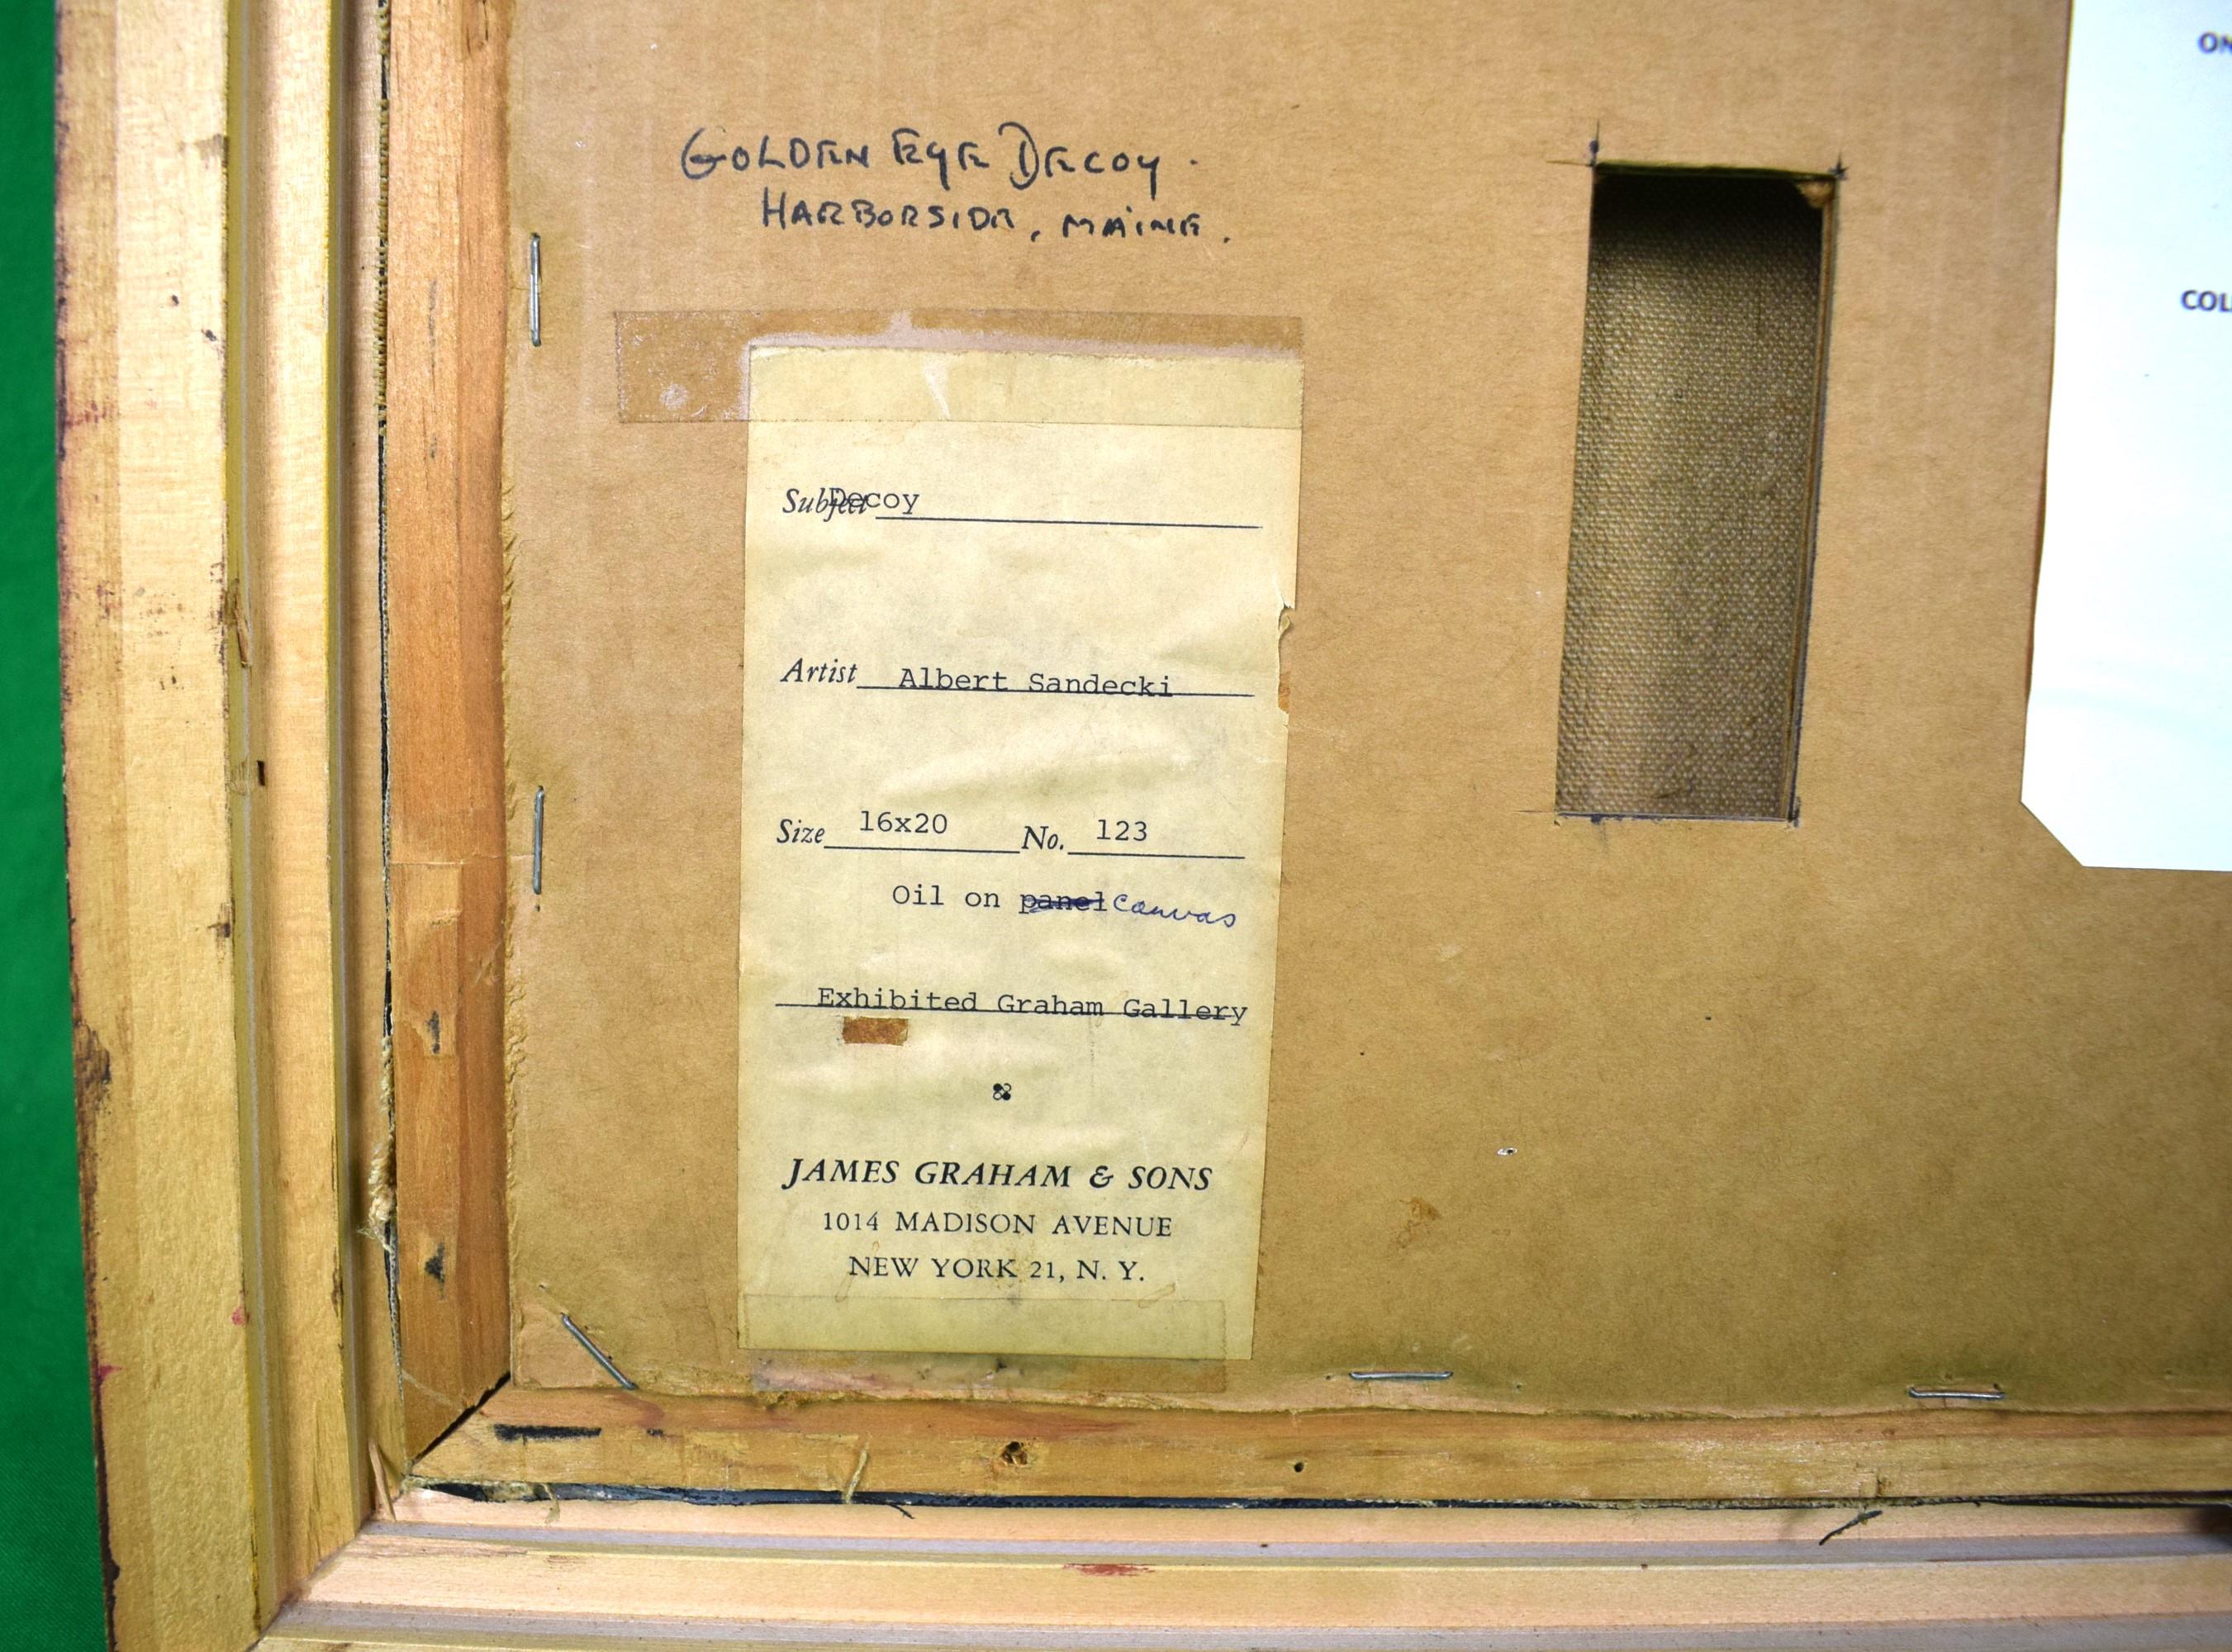 GOLDEN EYE DECOY.
HARBORSIDE, MAINE.
Subject Decoy
Artist Albert Sandecki
Size 16x20 No. 123
Oil on panel Canvas
Exhibited Graham Gallery
JAMES GRAHAM & SONS
1014 MADISON AVENUE
NEW YORK 21, N. Y.